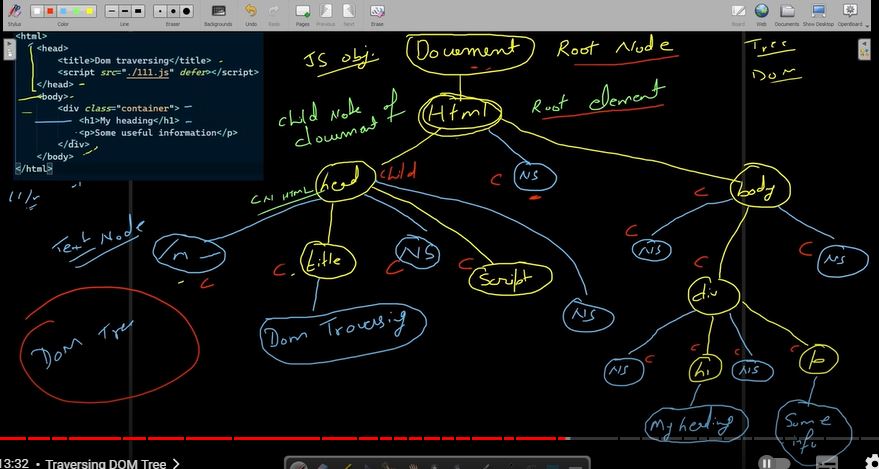 Stylus
Color
Line
Eraser
Backgrounds
Undo
Redo
Pages
Previous
Next
Erase
Board
Web
Documents
Show Desktop
OpenBoard
<html>
<head>
<title>Dom traversing</title>
<script src="./111.js" defer></script>
</head>
<body>
<div class="container">
<h1>My heading</h1>
<p>Some useful information</p>
</div>
</body>
</html>
JS obj.
Document
Root Node
Tree
DOM
Child Node of
document
Html
Root element
CN HTML
head
child
C
NS
C
body
Text Node
\n
C
C
title
C
NS
C
script
C
NS
C
NS
Dom Traversing
NS
C
div
Dom Tree
NS
C
C
h1
C
NS
C
p
My heading
Some
info
13:32 • Traversing DOM Tree